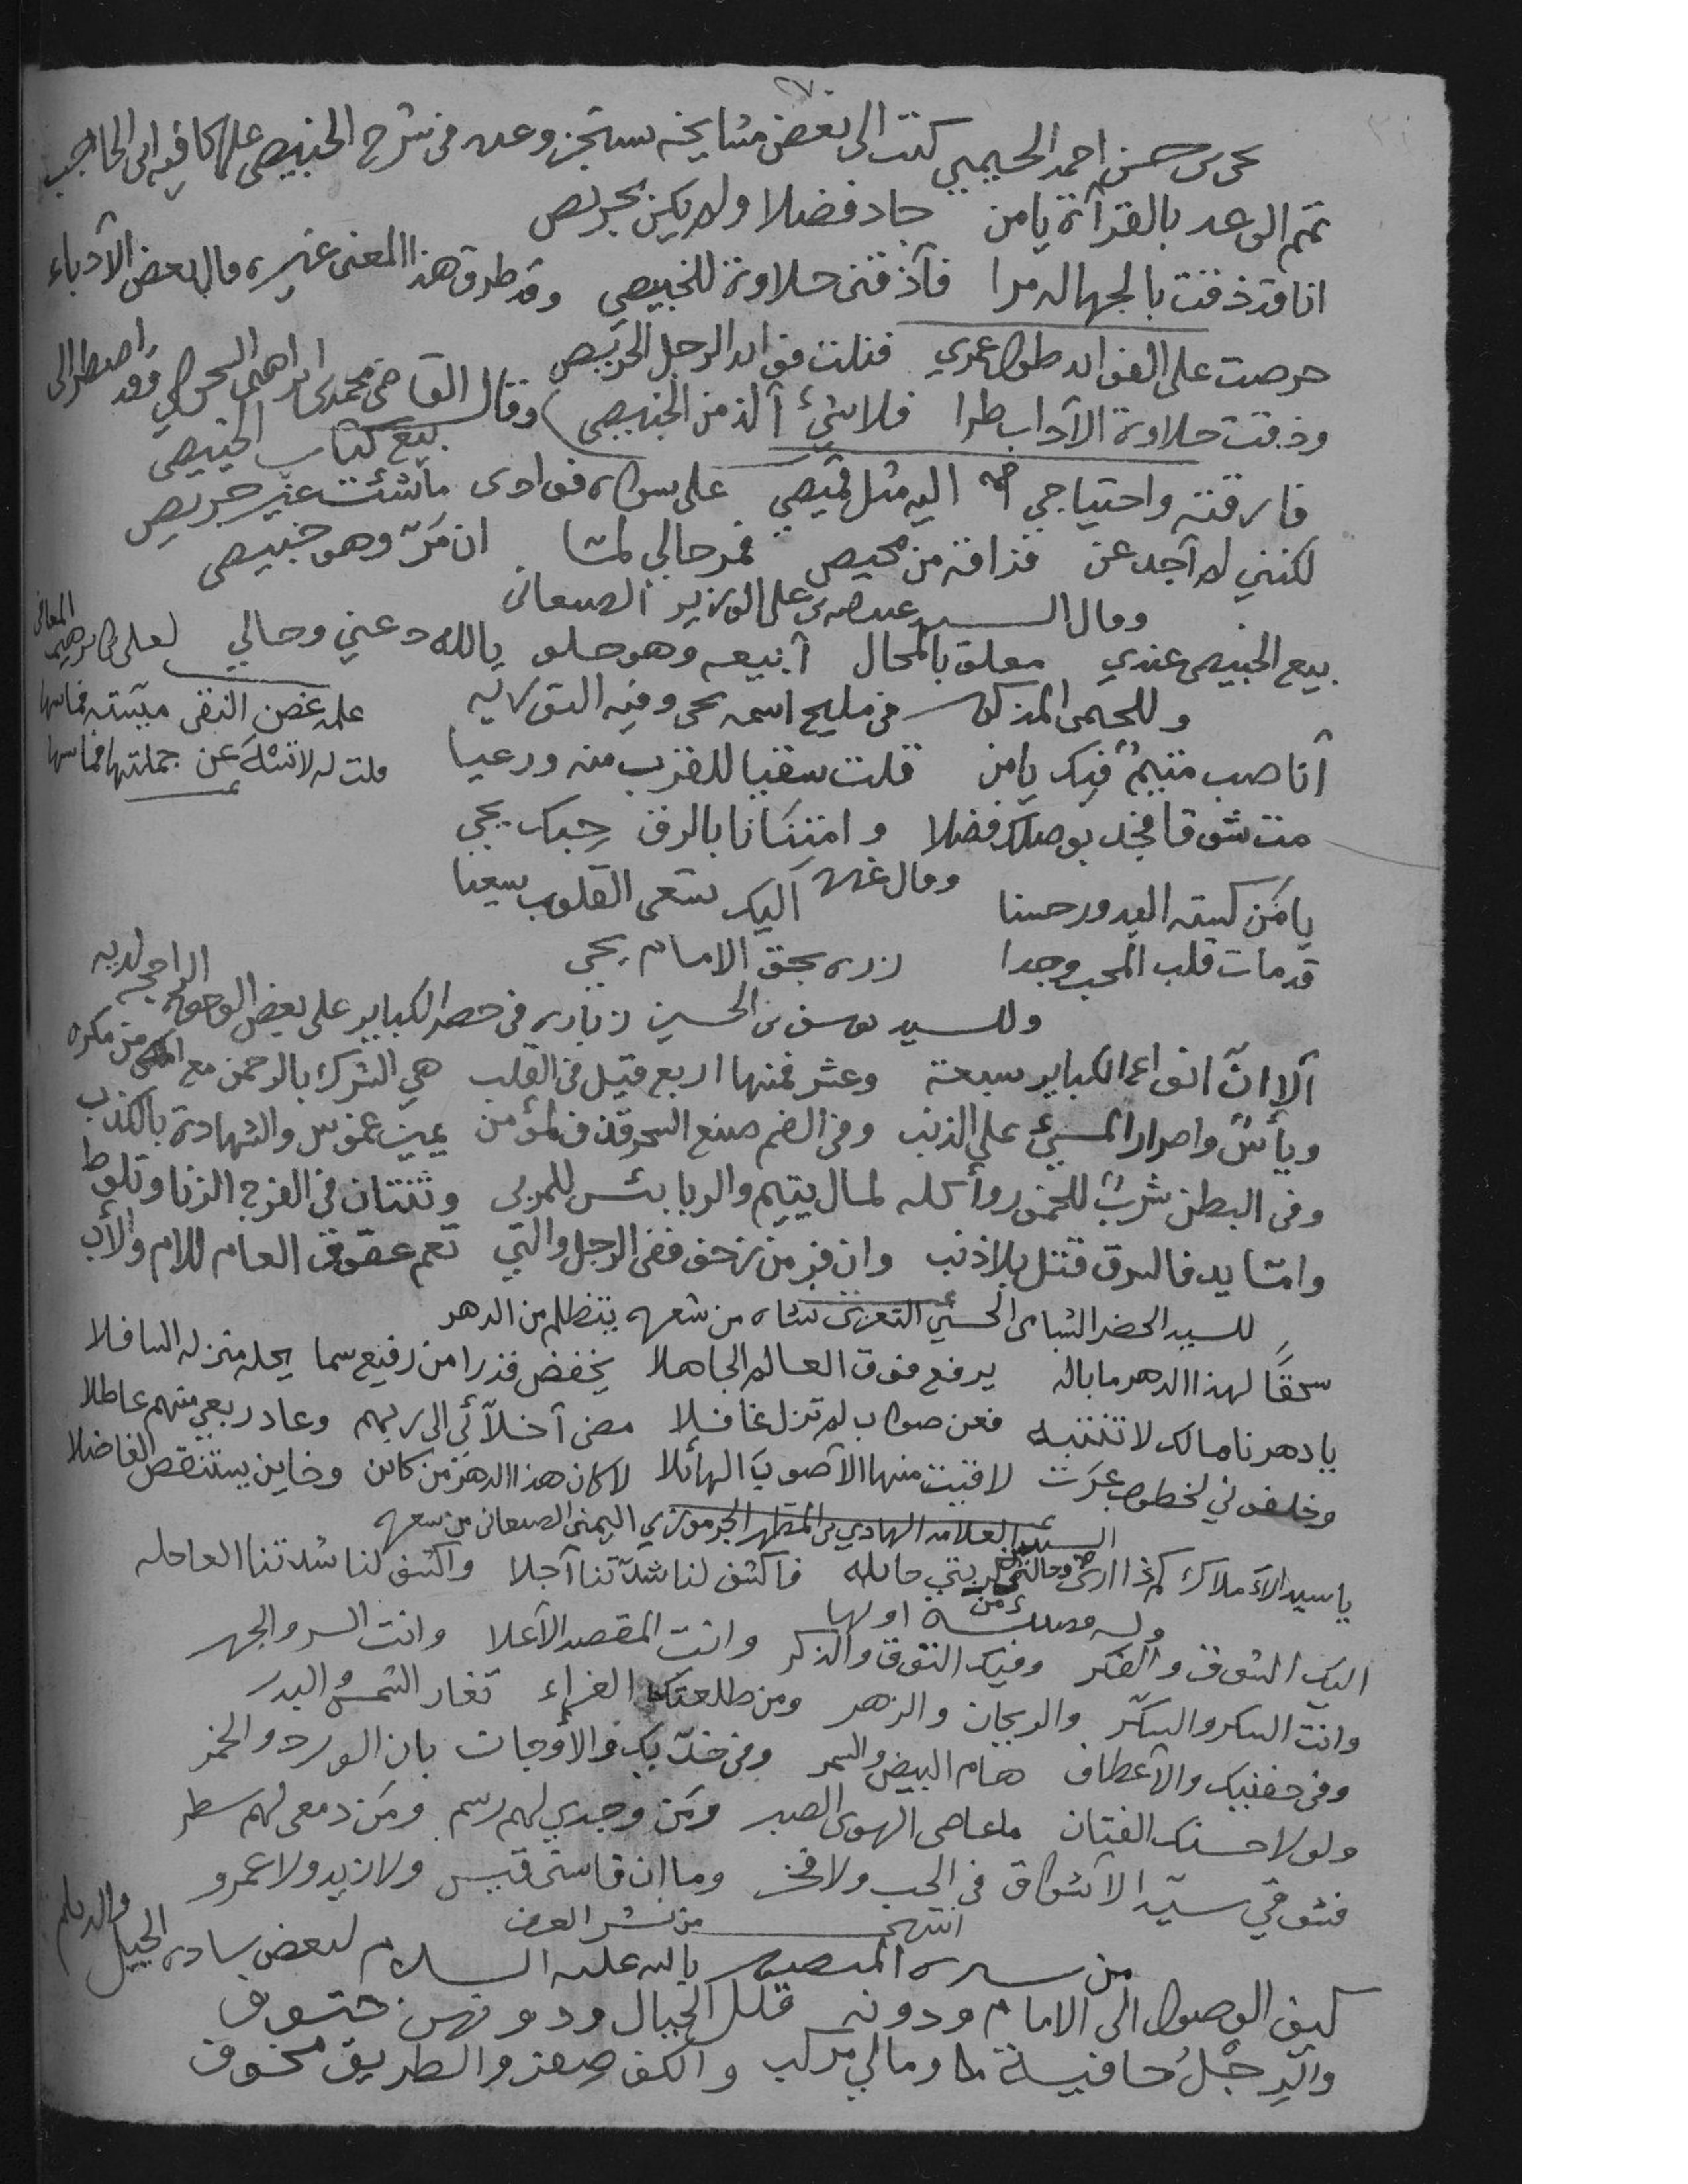 يحيى بن حسن احمد الحيمي كتب الى بعض مشايخه يستنجز وعده فى شرح الخبيصي على كافية ابن الحاجب
تمم الوعد بالقرآة يا من جاد فضلا ولم يكن بحريص
انا قد ذقت بالجهاله مرا فآذقني حلاوة للخبيصي وقد طرق هذا المعنى غيره قال بعض الآدباء
حرصت على الفوائد طول عمري فنلت فوائد الرجل الحريص
وذقت حلاوة الآداب طرا فلا شئ آلذ من الخبيصي وقال القاضي محمد بن ابراهيم السحولي وقد اضطر الى
بيع كتاب الخبيصي
فارقته واحتياجي اليه مثل قميصي على سواه فوادى ما شئت غير حريص
لكنني لم آجد عن فراقه من محيص فمر حالي لما ان مَرّ وهو خبيصي
وقال السيد عبدالله بن علي الوزير الصنعانى
بيع الخبيصي عندي معلق بالمحال آبيعه وهو حلو يالله دعني وحالي لعلي بن ابرهيم المعافى
وللحيمي المذكور في مليح اسمه يحيى وفيه التوريه
علمه غصن النقى
آنا صب متيمٌ فيك يا من قلت سقيا للقرب منه ورعيا
قلت له لا تسئل عن جملتها
مت شوقا فجد بوصلك فضلا وامتنانا بالرفق حبك يحيى
وقال غيره
يا مَن كسته البدور حسنا آليك تسعى القلوب سعيا
قد مات قلب المحب وجدا زره بحق الامام يحيى
وللسيد يوسف بن الحسين زباره فى حصر الكباير على بعض الوجوه الراجح لديه
آلا انّ انواع الكباير سبعة وعشر فمنها اربع قيل في القلب هي الشرك بالرحمن مع امن من مكره
ويأسٌ واصرار المسئ على الذنب وفي الفم صنع السحر قذف لمؤمن يمين غموس والشهادة بالكذب
وفى البطن شربٌ للخمور وأكله لمال يتيم والربا بئس للمربى وثنتان فى الفرج الزنا وتلوط
وامّا يد فالسرق قتل بلا ذنب وان فر من زحف ففى الرجل والتي تعم عقوق العام للام والأب
للسيد الخضر الشامى الحسني التعزى من شعره يتظلم من الدهر
سحقًا لهذا الدهر ما باله يرفع فوق العالم الجاهلا يخفض قدرا من رفيع سما يحله منزله السافلا
يا دهرنا مالك لا تنتبه فعن صواب لم تزل غافلا مضى آخلآئي الى ربهم وعاد ربعي منهم عاطلا
وخلفوني لخطوب عَرَت لاقيت منها الآصوبَ الهائلا لا كان هذا الدهر من كائن وخاين يستنقص الفاضلا
السيد العلامه الهادي بن المطهر الجرموزي اليمني الصنعانى من شعره
يا سيد الآملاك كم ذا ارى وحالتي حائله فاكشف لنا شدّتنا آجلا واكشف لنا شدتنا العاجله
وله من قصيدة اولها
اليك الشوق والفكر وفيك الذوق والذكر وانت المقصد الآعلا وانت السر والجهر
وانت السكر والسكّر والريحان والزهر ومن طلعتك الغراء تغار الشمس والبدر
وفى جفنيك والآعطاف هام البيض والسمر وفى خدّيك والآوجات بان الورد والخمر
ولولا حسنك الفتان ما عاصى الهوى الصبر ومَن وجدي لهم رسم ومَن دمعى لهم سطر
فشوقي سيّد الآشواق فى الحب ولا فخر وما ان قاسى قيس ولا زيد ولا عمرو
انتهى من نشر العرف
من سيرة المنصور بالله عليه السلام لبعض سادة الجيل والديلم
كيف الوصول الى الامام ودونه قلل الجبال ودونهن حتوف
والرِجْلُ حافية وما لي مركب والكف صفر والطريق مخوف